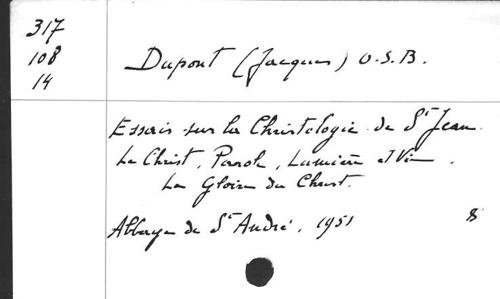 317
108
14
Dupont (Jacques) O.S.B.
Essais sur la Christologie de St Jean.
Le Christ, Parole, Lumière et Vie.
La Gloire du Christ.
Abbaye de St André, 1951 8